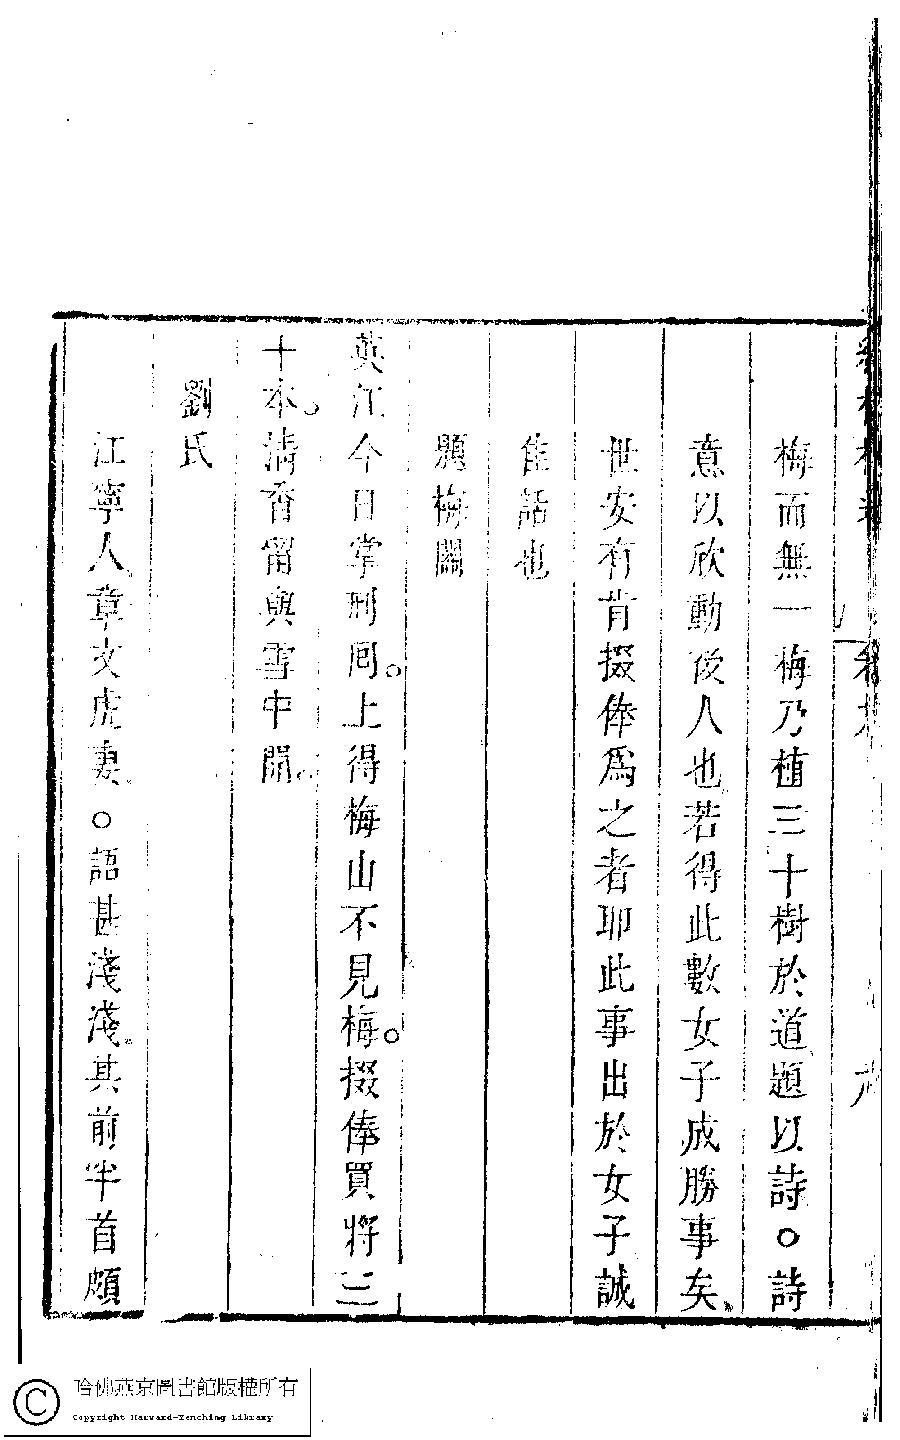 梅而無一梅乃植三十樹於道題以詩○詩
意以欣動後人也若得此數女子成勝事矣
世安有肯掇俸爲之者耶此事出於女子誠
佳話也
題梅關
英江今日掌刑囘上得梅山不見梅掇俸買將三
十本清香留與雪中開
劉氏
江寧人章文虎妻○語甚淺淺其前半首頗
哈佛燕京圖書館版權所有
Copyright Harvard-Yenching Library